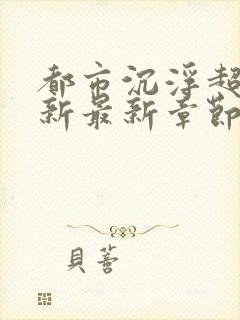 都市沉浮超
新最新章節
貝蕾